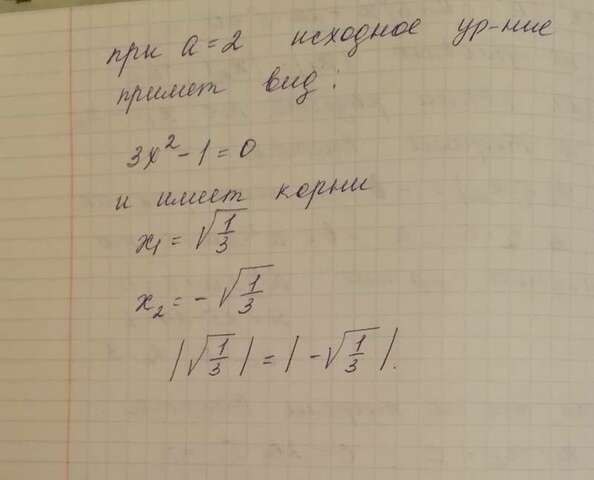 при a = 2 исходное ур-ние
примет вид:
3x² - 1 = 0
и имеет корни
x₁ = √(1/3)
x₂ = - √(1/3)
|√(1/3)| = |-√(1/3)|.